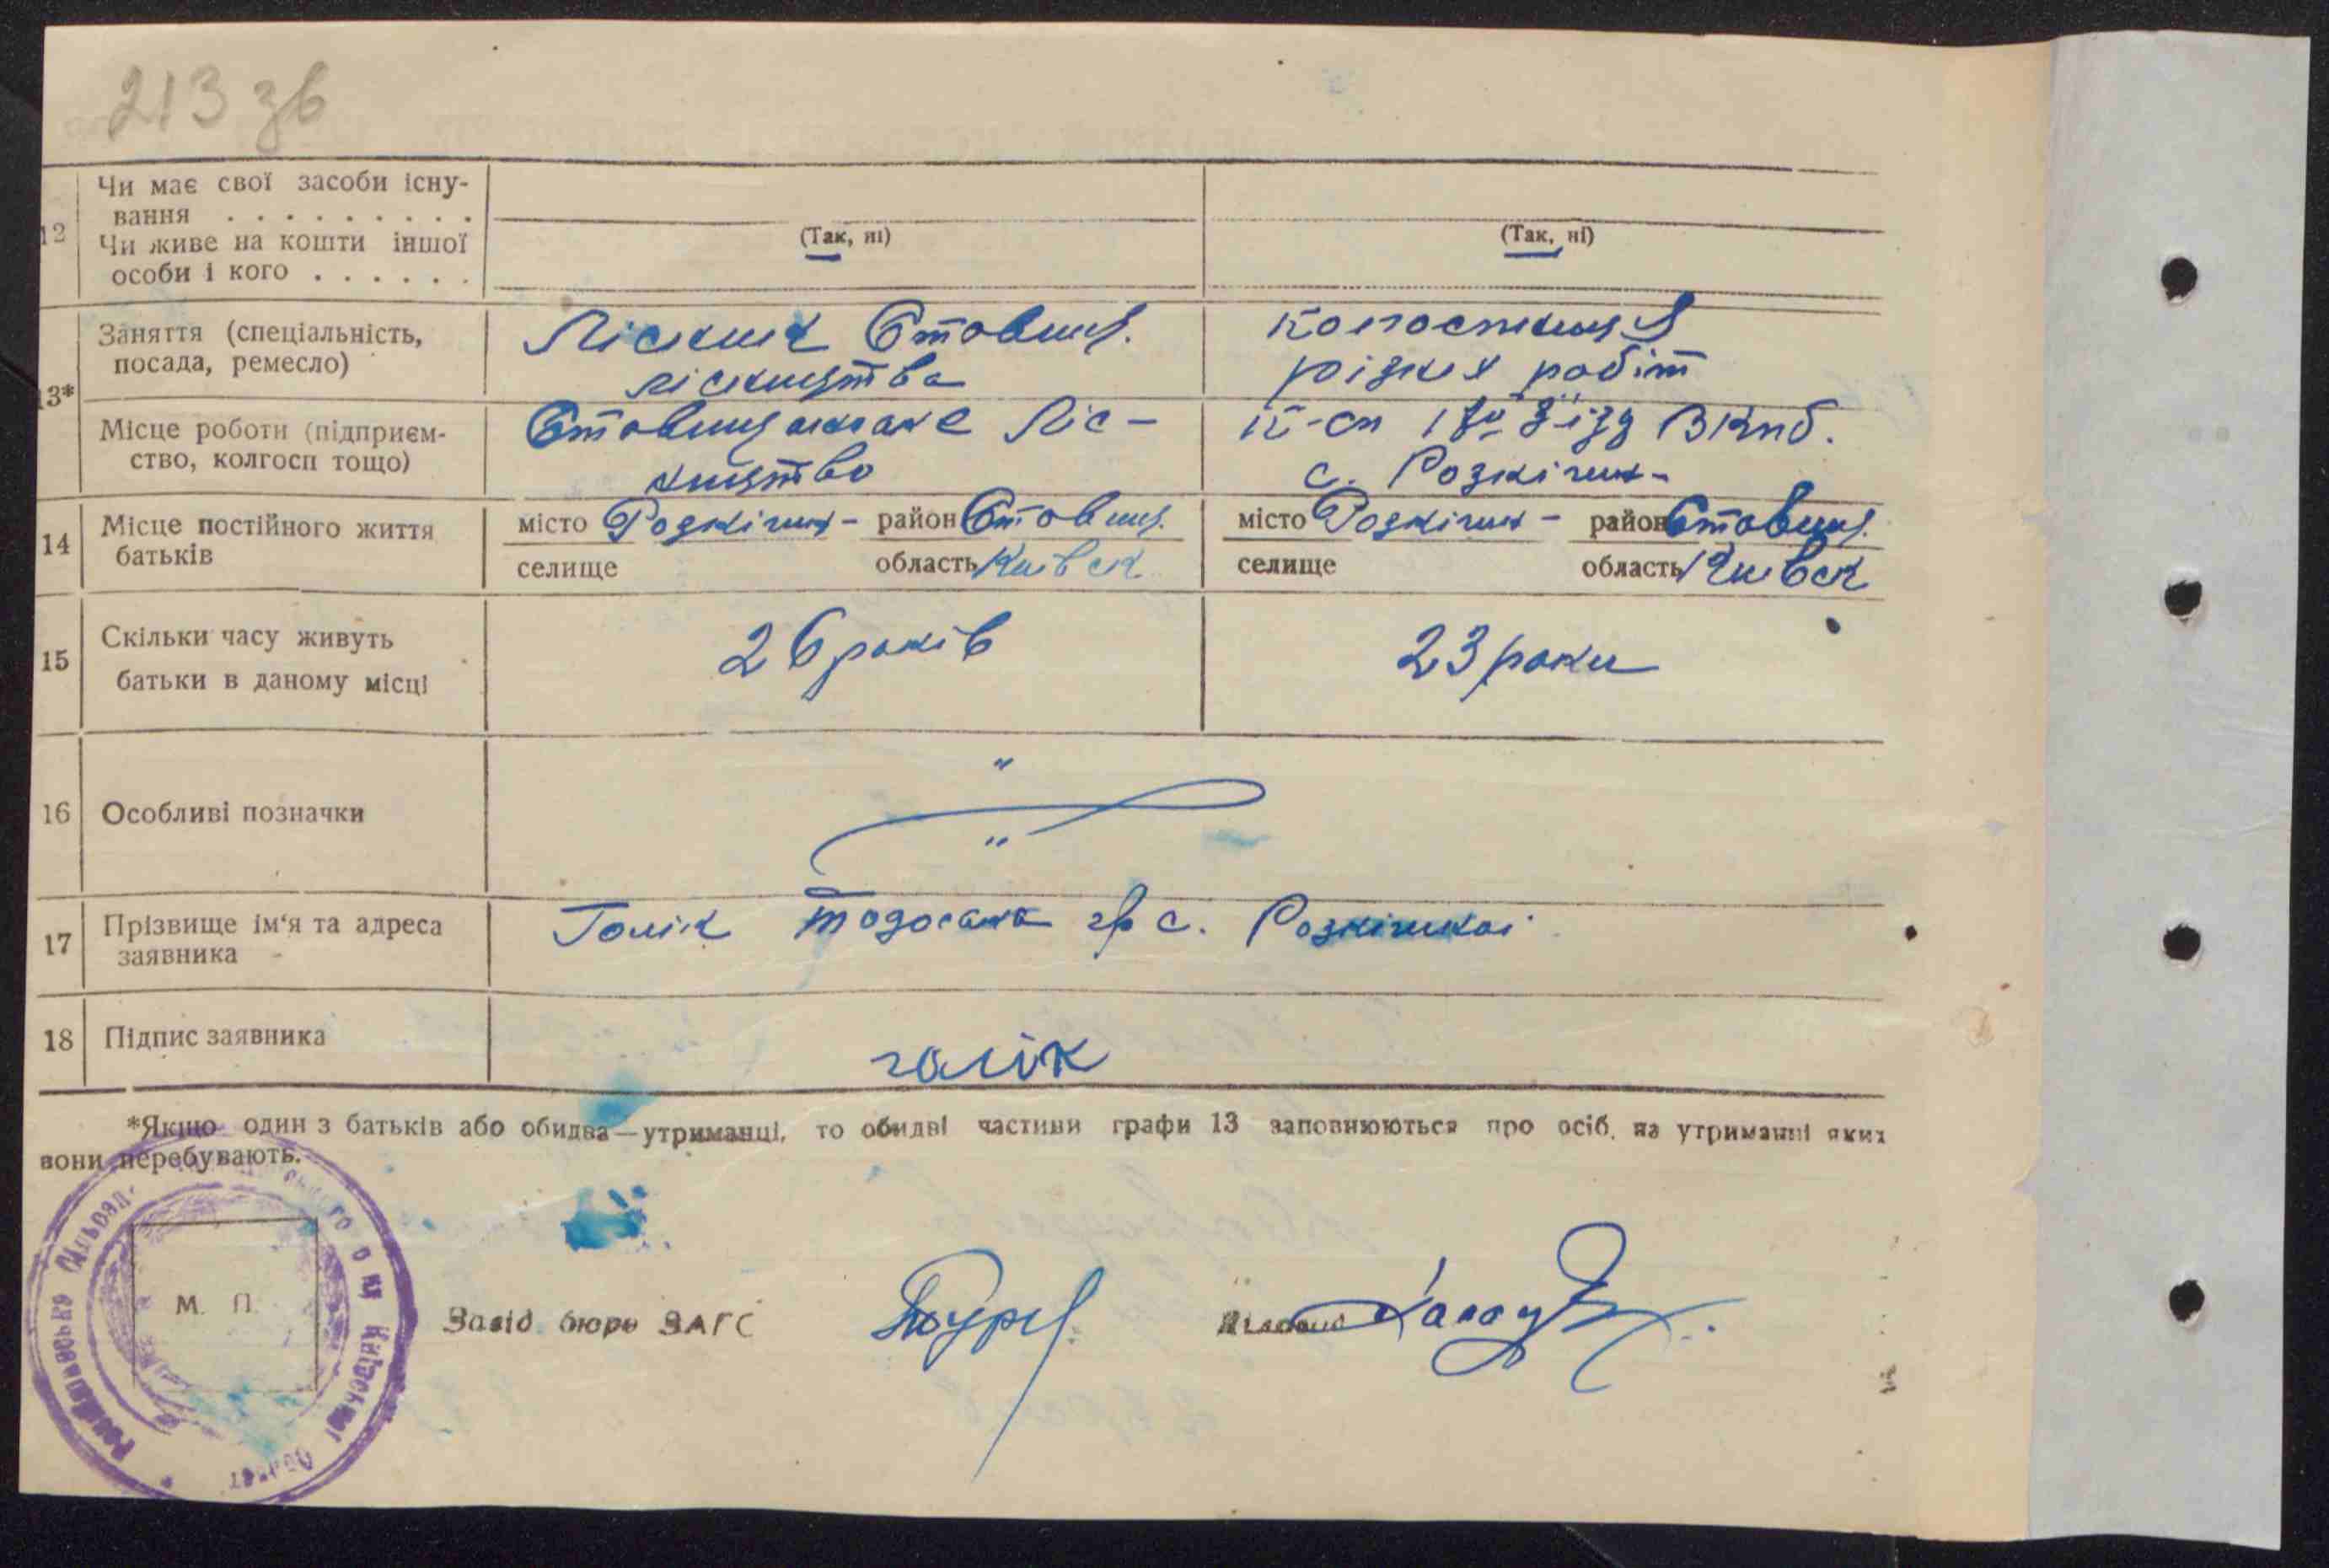 213 зв
12 Чи має свої засоби існу-
вання . . . . . . . . .
Чи живе на кошти іншої
особи і кого . . . . . .
(Так, ні) (Так, ні)
13* Заняття (спеціальність,
посада, ремесло)
Лісник Ставищ.
лісництва
колгоспниця
різних робіт
Місце роботи (підприєм-
ство, колгосп тощо)
Ставищанське Ліс-
ництво
к-сп 17й з'їзд ВКпб.
с. Розкішн-
14 Місце постійного життя
батьків
місто Розкішн- район Ставищ.
селище область Київськ
місто Розкішн- район Ставищ.
селище область Київськ
15 Скільки часу живуть
батьки в даному місці
26 років 23 роки
16 Особливі позначки
" "
17 Прізвище ім'я та адреса
заявника
Голік Тодосана гр с. Розкішної
18 Підпис заявника
голік
*Якщо один з батьків або обидва—утриманці, то обидві частини графи 13 заповнюються про осіб, на утриманні яких
вони перебувають.
М. П.
Завід бюро ЗАГС